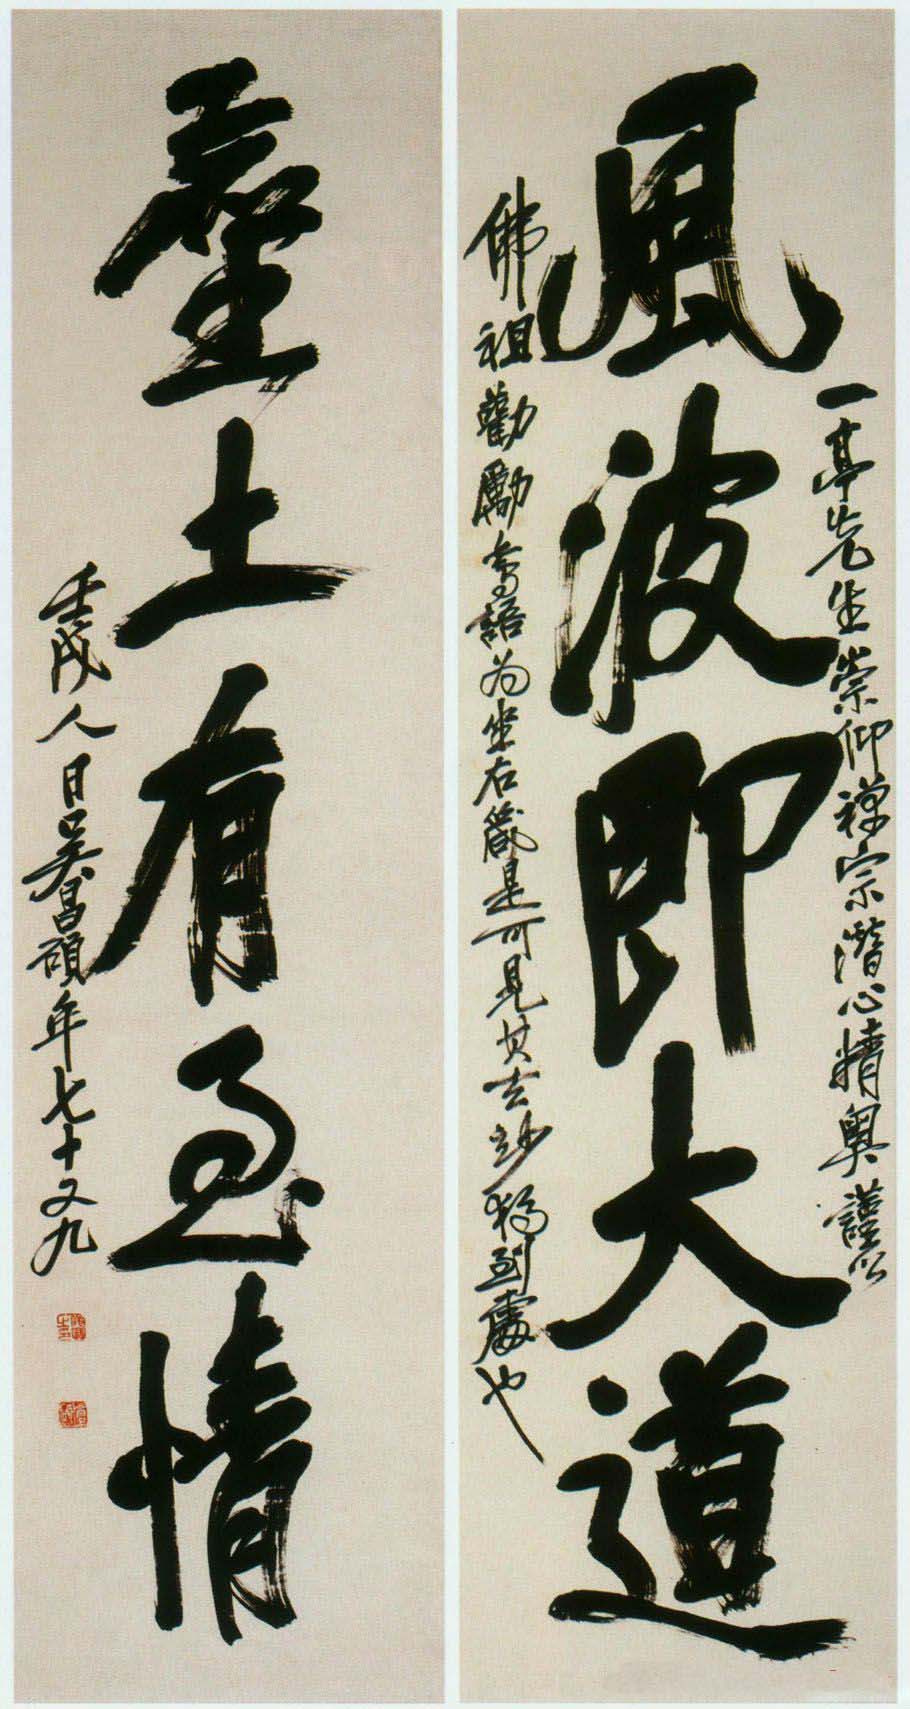 一亭先生崇仰禪宗潛心精奧謹以
風波即大道
佛祖勸勵寄語為坐右箴是可見其玄妙獨到處也
塵土有至情
壬戌人日吳昌碩年七十又九